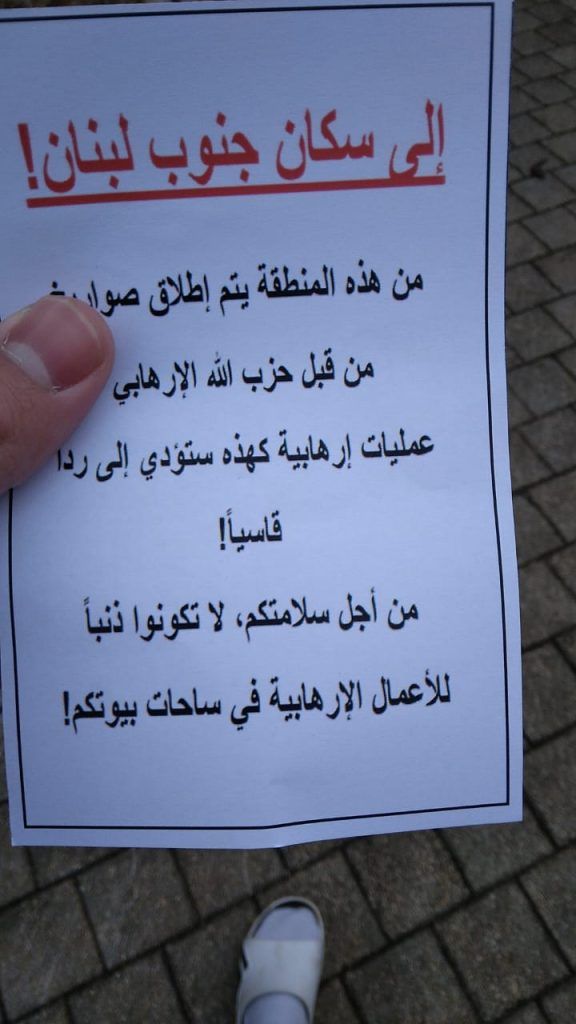 إلى سكان جنوب لبنان!
من هذه المنطقة يتم إطلاق صواريخ
من قبل حزب الله الإرهابي
عمليات إرهابية كهذه ستؤدي إلى ردا
قاسياً!
من أجل سلامتكم، لا تكونوا ذنباً
للأعمال الإرهابية في ساحات بيوتكم!